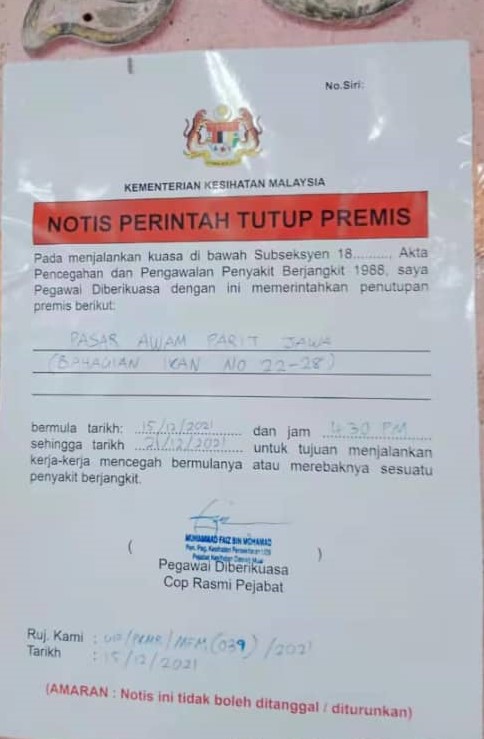 No.Siri:
KEMENTERIAN KESIHATAN MALAYSIA
NOTIS PERINTAH TUTUP PREMIS
Pada menjalankan kuasa di bawah Subseksyen 18.......... Akta
Pencegahan dan Pengawalan Penyakit Berjangkit 1988, saya
Pegawai Diberikuasa dengan ini memerintahkan penutupan
premis berikut:
PASAR AWAM PARIT JAWA
(BAHAGIAN IKAN NO 22-28)
bermula tarikh: 15/12/2021 dan jam 4.30 PM
sehingga tarikh 21/12/2021 untuk tujuan menjalankan
kerja-kerja mencegah bermulanya atau merebaknya sesuatu
penyakit berjangkit.
MUHAMMAD FAIZ BIN MOHAMAD
Pen. Peg. Kesihatan Persekitaran U29
Pejabat Kesihatan Daerah Muar
( )
Pegawai Diberikuasa
Cop Rasmi Pejabat
Ruj. Kami : (039) /2021
Tarikh : 15/12/2021
(AMARAN : Notis ini tidak boleh ditanggal / diturunkan)